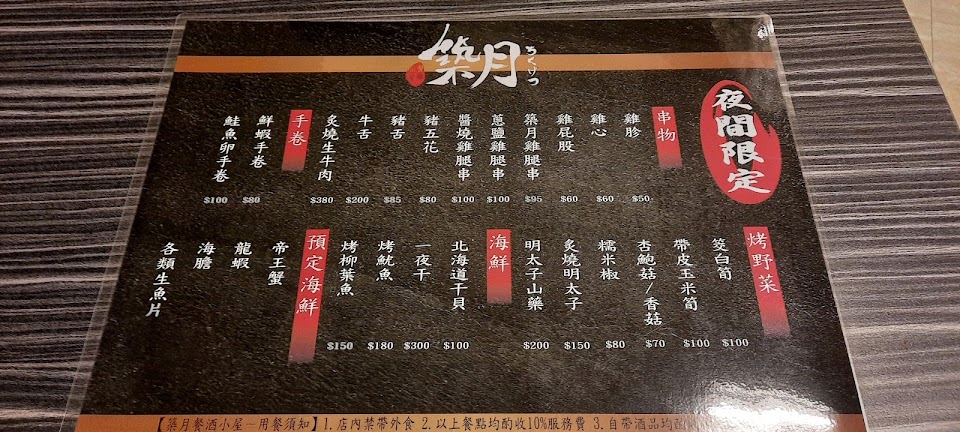 築月
ちくげつ
夜間限定
串物
雞胗 $50
雞心 $60
雞屁股 $60
築月雞腿串 $95
蔥鹽雞腿串 $100
醬燒雞腿串 $100
豬五花 $80
豬舌 $85
牛舌 $200
炙燒生牛肉 $380
手卷
鮮蝦手卷 $80
鮭魚卵手卷 $100
烤野菜
筊白筍 $100
帶皮玉米筍 $100
杏鮑菇/香菇 $70
糯米椒 $80
炙燒明太子 $150
明太子山藥 $200
海鮮
北海道干貝 $100
一夜干 $300
烤魷魚 $180
烤柳葉魚 $150
預定海鮮
帝王蟹
龍蝦
海膽
各類生魚片
【築月餐酒小屋－用餐須知】1.店內禁帶外食 2.以上餐點均酌收10%服務費 3.自帶酒品均酌